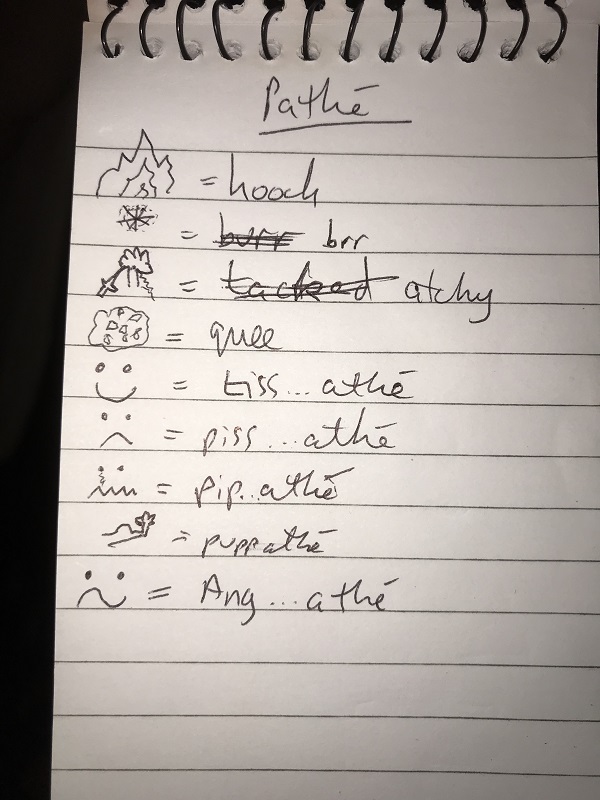 Pathē
= hooch
= burr brr
= tacked atchy
= quee
= tiss...athē
= piss...athē
= pip..athē
= puppathē
= Ang...athē